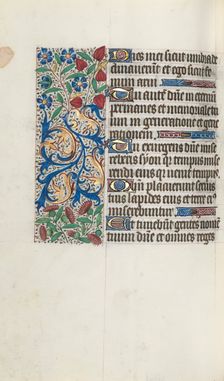 Dies mei sicut umbra de
clinauerunt et ego sicut fe
num arui
Tu autem dñe in eternũ
permanes et memoriale tu
um in generatione et gene
rationem
Tu exurgens dñe mise
reberis syon quia tempus mise
rendi eius quia uenit tempus
Qm placuerunt seruis
tuis lapides eius et terre ei
miserebuntur
Et timebunt gentes nomẽ
tuum dñe et omnes reges